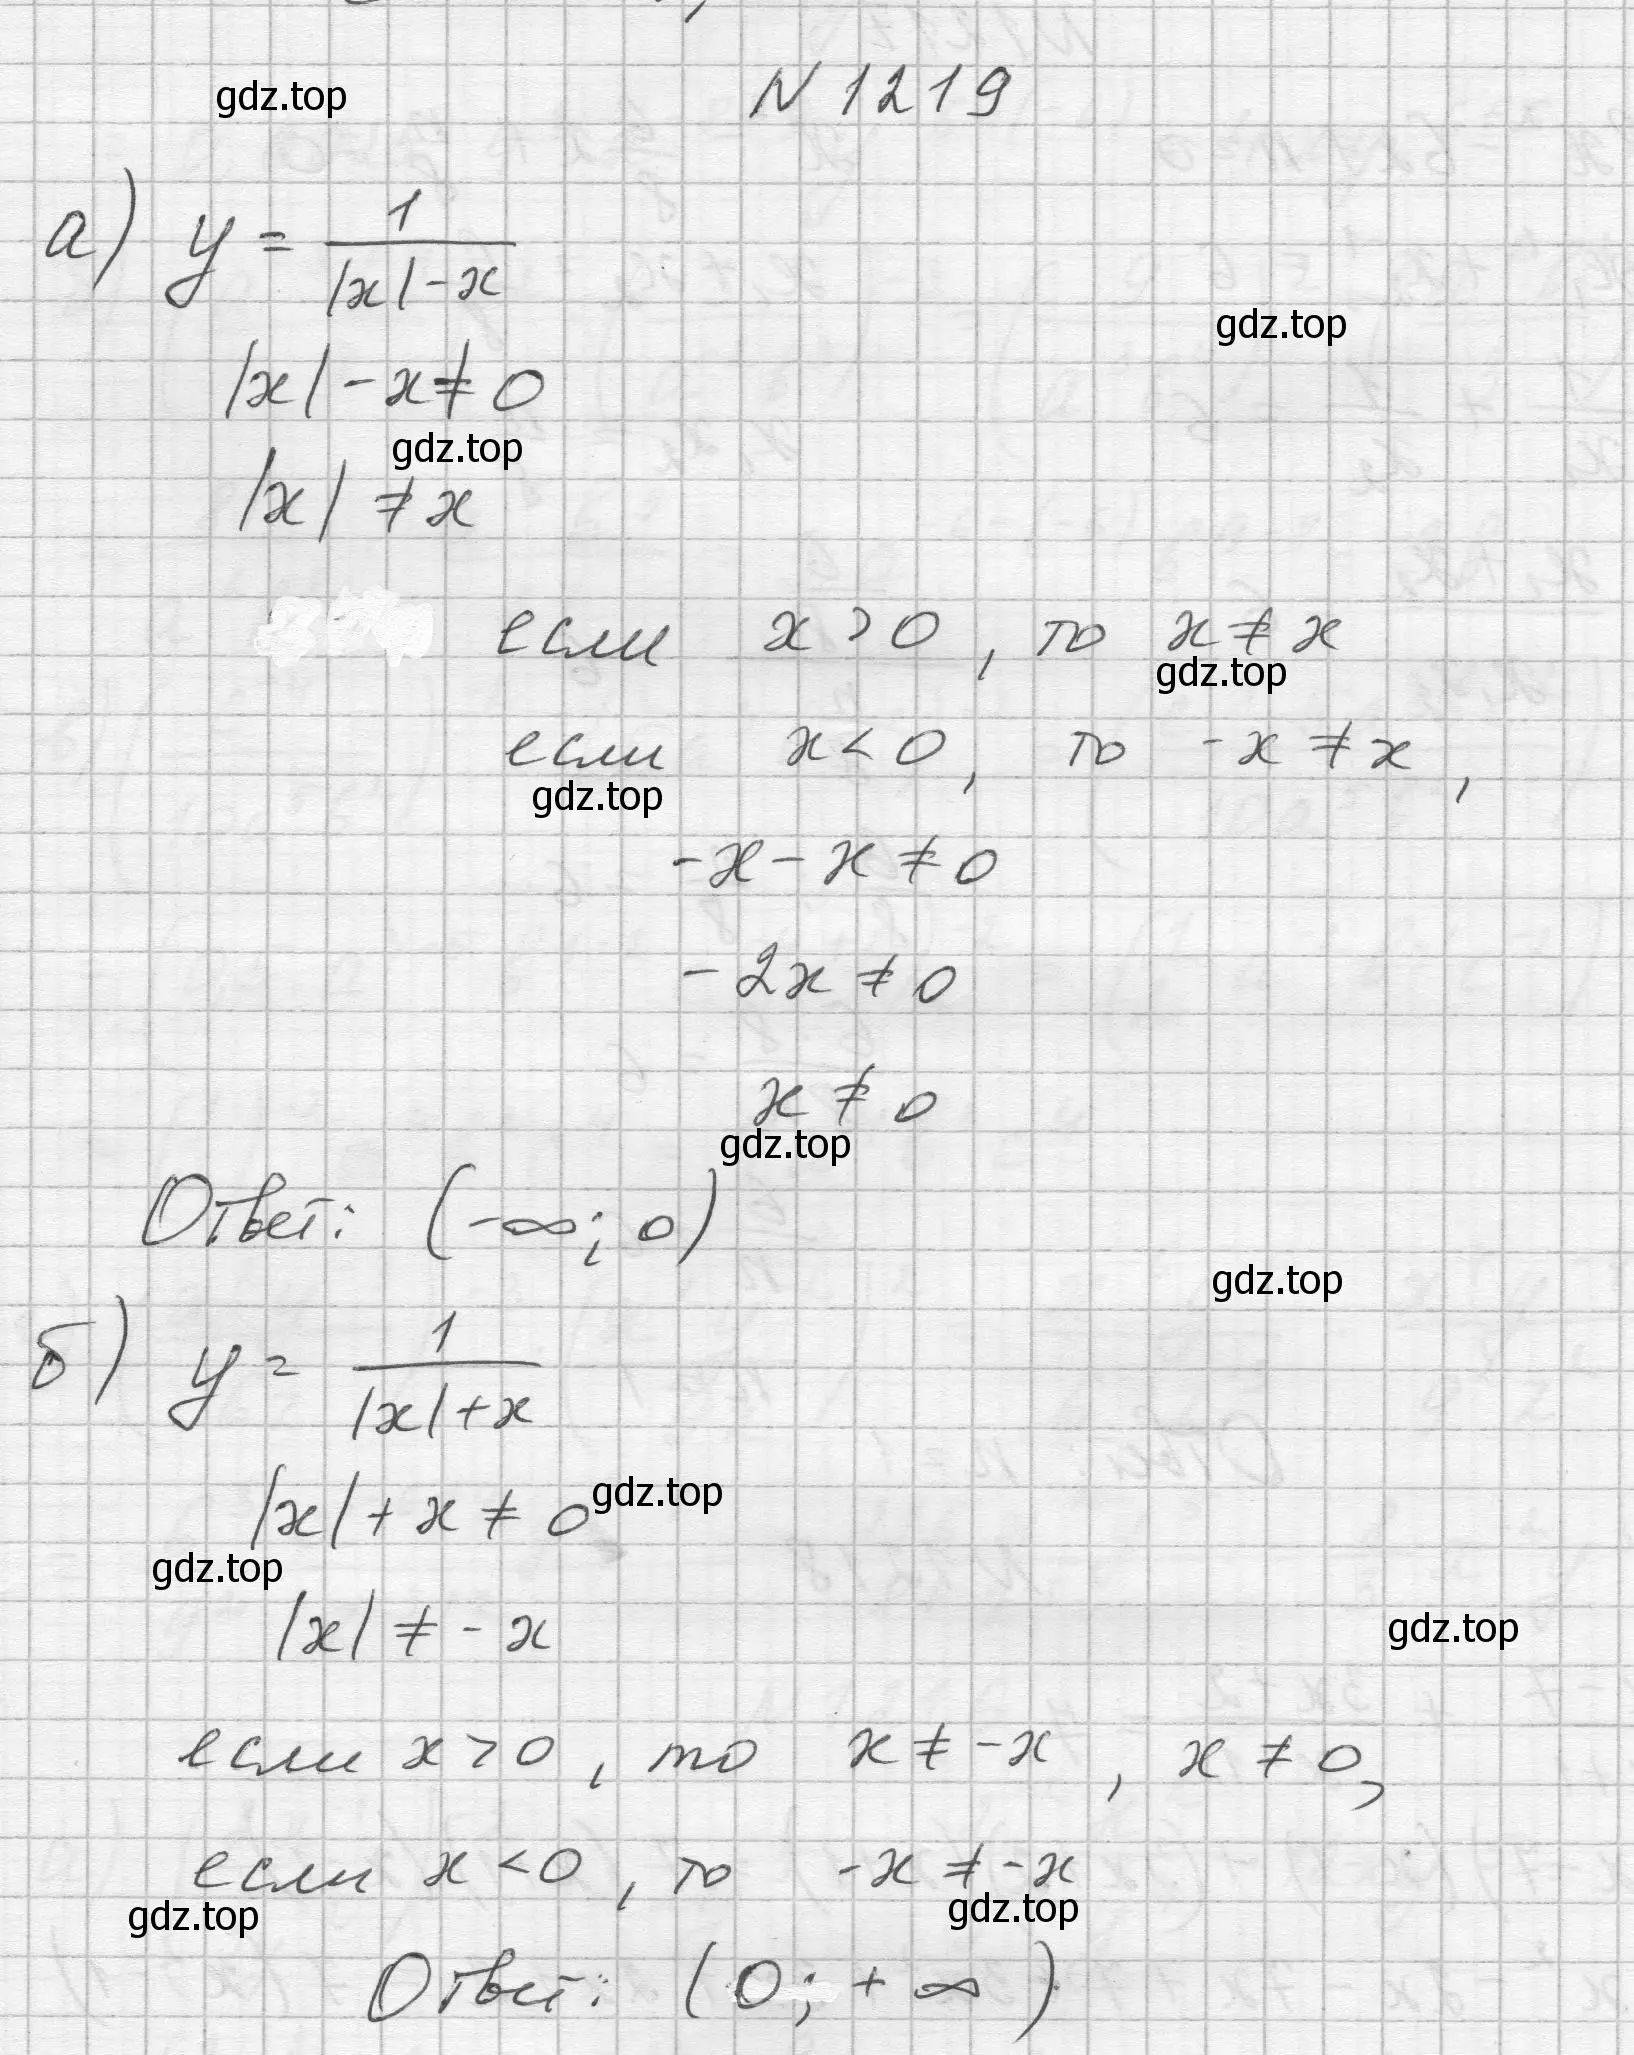 gdz.top
N 1219
а) y = 1/(|x| - x)
gdz.top
|x| - x ≠ 0
gdz.top
|x| ≠ x
если x > 0, то x ≠ x
gdz.top
если x < 0, то -x ≠ x,
gdz.top
-x - x ≠ 0
-2x ≠ 0
x ≠ 0
gdz.top
Ответ: (-∞; 0)
gdz.top
б) y = 1/(|x| + x)
|x| + x ≠ 0
gdz.top
gdz.top
|x| ≠ -x
gdz.top
если x > 0, то x ≠ -x, x ≠ 0,
если x < 0, то -x ≠ -x
gdz.top
gdz.top
Ответ: (0; +∞)